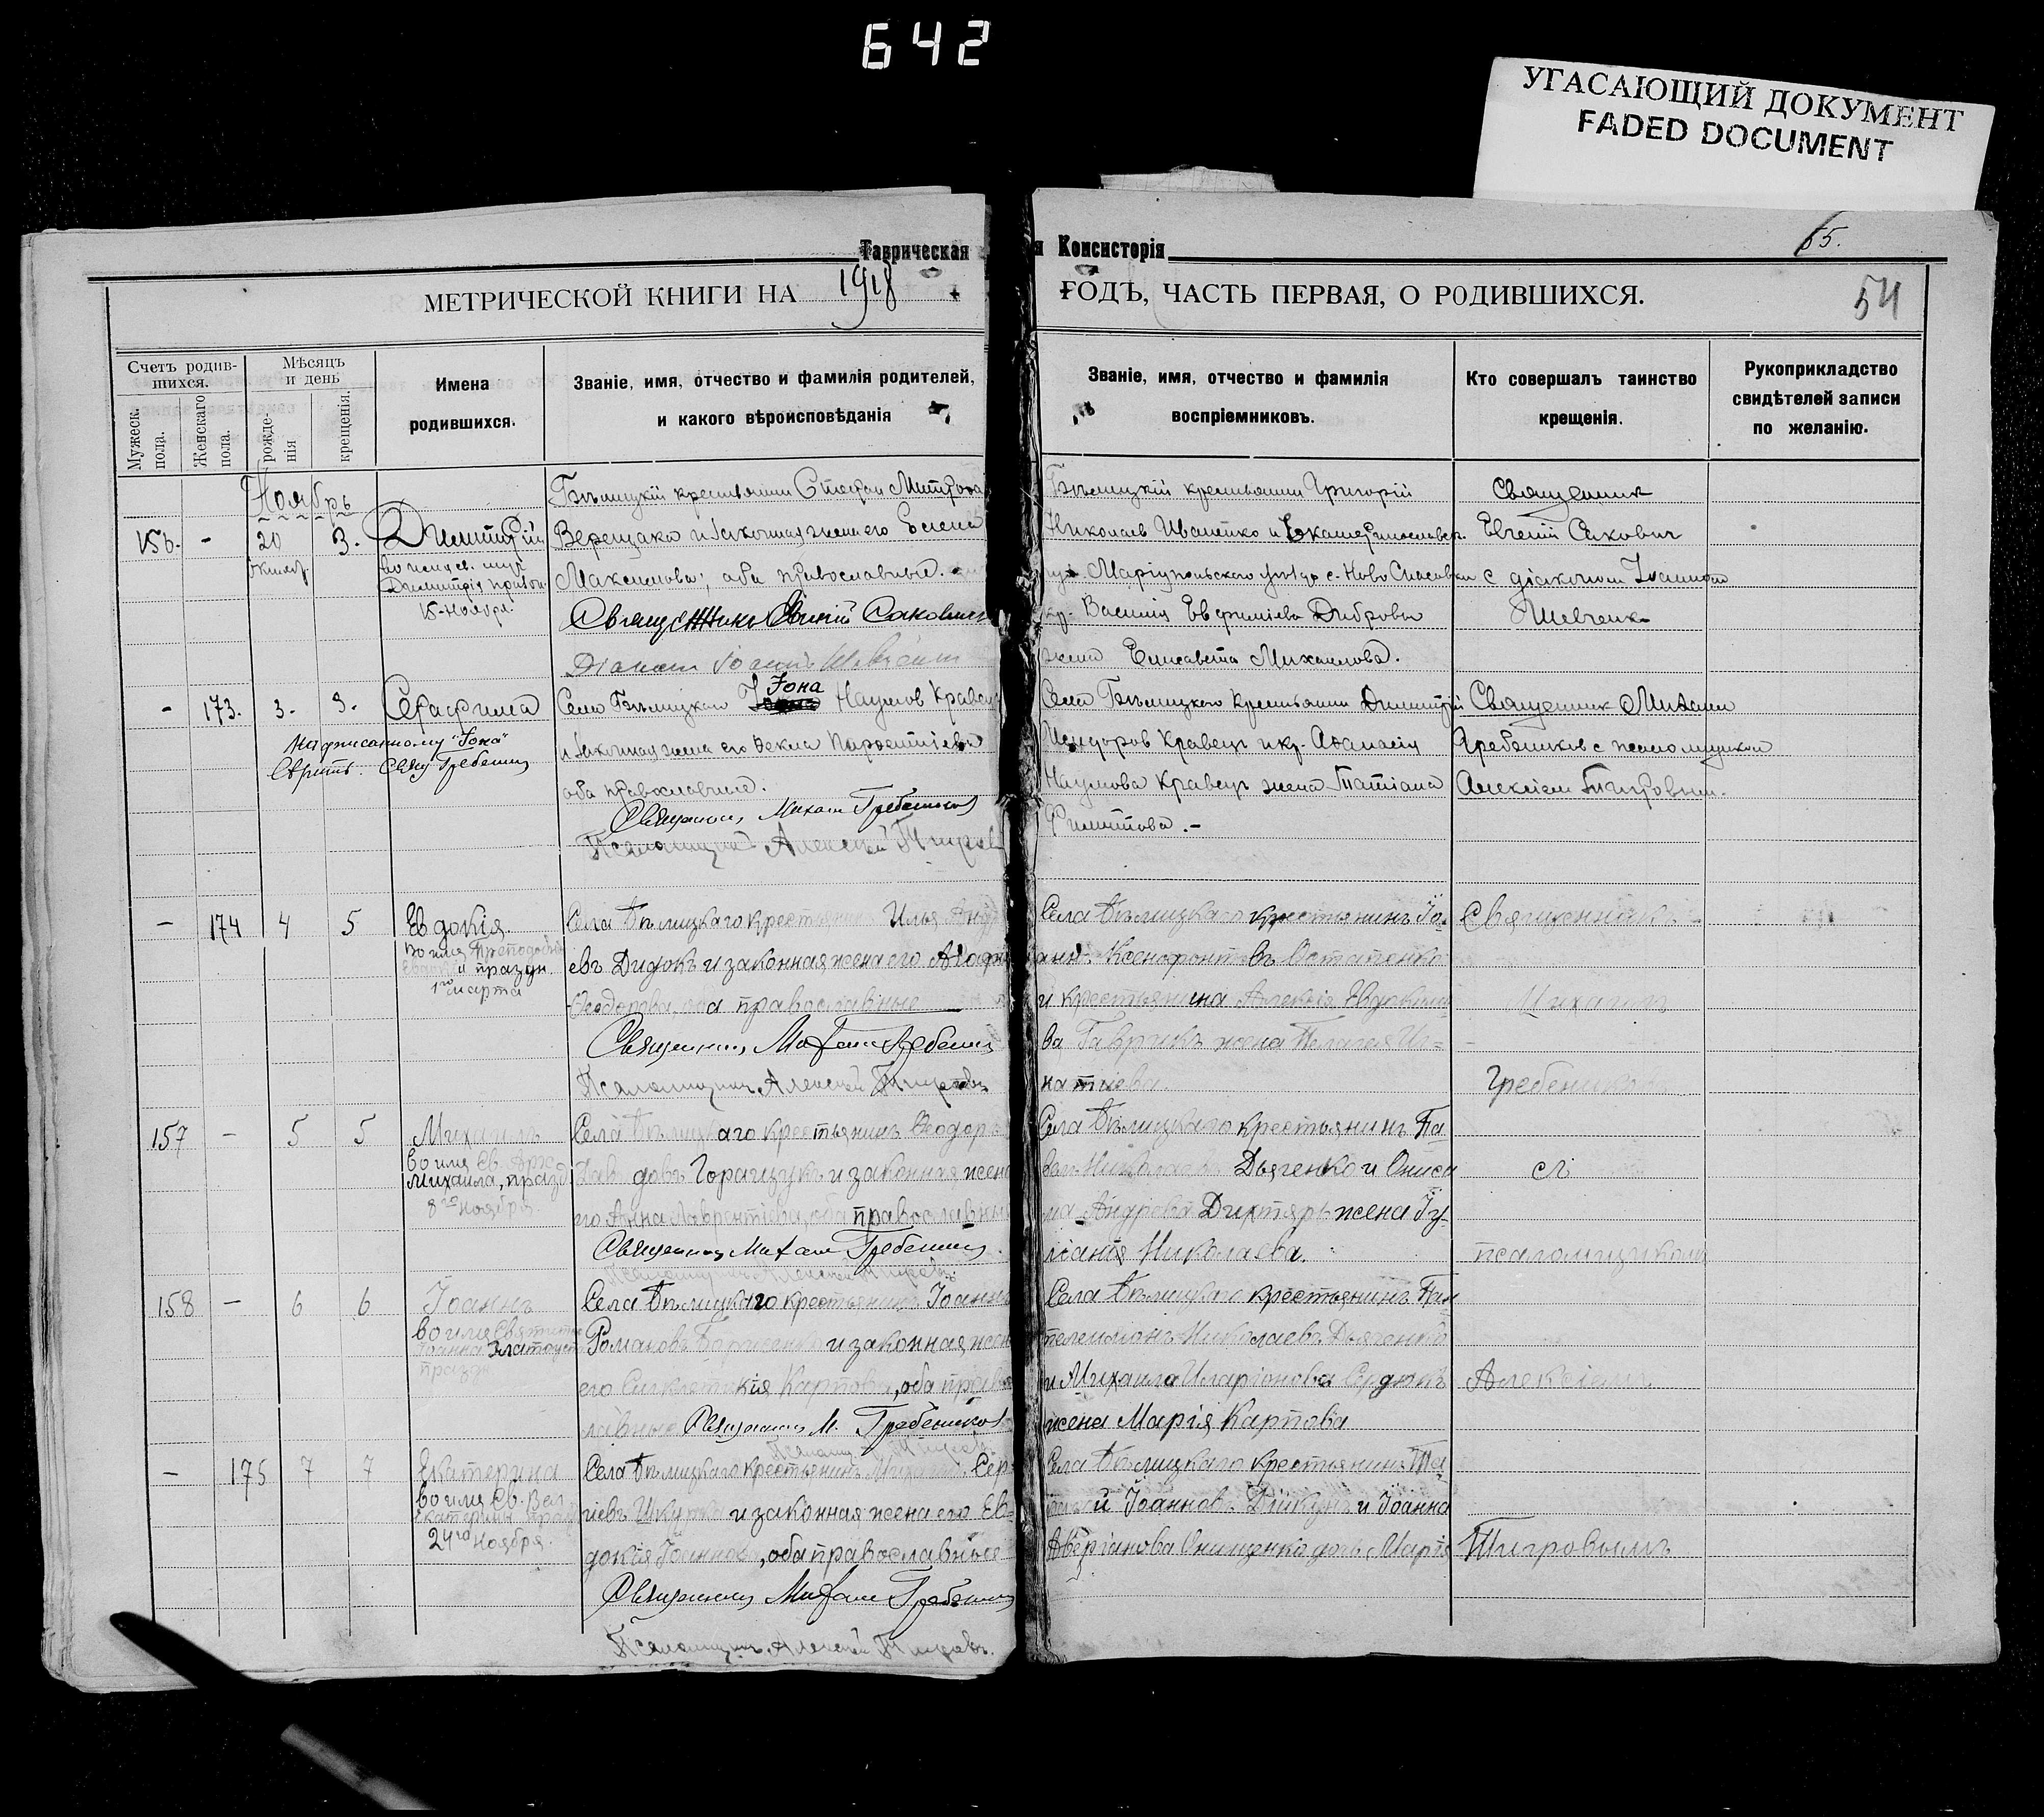 642
УГАСАЮЩИЙ ДОКУМЕНТ
FADED DOCUMENT
65.
54
Таврическая
я Консисторія
МЕТРИЧЕСКОЙ КНИГИ НА 1918
ГОДЪ, ЧАСТЬ ПЕРВАЯ, О РОДИВШИХСЯ.
Счетъ родив-
шихся.
Мужеск. пола.
Женскаго пола.
Мѣсяцъ
и день
рожде-
нія
крещенія.
Имена
родившихся.
Званіе, имя, отчество и фамилія родителей,
и какого вѣроисповѣданія
Званіе, имя, отчество и фамилія
воспріемниковъ.
Кто совершалъ таинство
крещенія.
Рукоприкладство
свидѣтелей записи
по желанію.
Ноябрь
156. - 20 3. Димитрій
15 Ноября.
Бѣлицкій крестьянин Стефан
Верещака и законная жена его Елена
Максимова; оба православные.
Священник Евгеній Сакович
Діакон Іоаннъ Шевченко
Бѣлицкій крестьянин Григорій
Николаев Иваненко и Екатеринославск.
Маріупольскаго с. Ново Спасовки
кр. Василія Евфиміева Диброва
жена Елисавета Михаилова.
Священник
Евгеній Сакович
с діаконом Іоанном
Шевченко
- 173. 3. 3. Серафима
Надписанному "Іона"
вѣрить. Свящ Гребеник
Села Бѣлицкаго Іона Наумов Кравец
и законная жена его Фекла
оба православные.
Священник Михаил Гребеников
Псаломщик Алексей Тигров
Села Бѣлицкаго крестьянин Димитрій
Кравец и кр. Аѳанасія
Наумова Кравец жена Татіана
Филиппова.-
Священник Михаил
Гребеников с псаломщиком
Алексіем Тигровым.
- 174 4 5 Евдокія.
Во имя Преподобн
Евдокіи празн.
1го марта
Села Бѣлицкаго крестьянинъ Илья
евъ Дидокъ и законная жена его
Ѳеодорова, оба православные
Священник Михаил Гребеник
Псаломщик Алексей Тигровъ
Села Бѣлицкаго крестьянинъ Іо-
аннъ Ксенофонтовъ Остапенко
и крестьянина Алексія
ва Гаврикъ жена Пелагея Иг=
натіева
Священникъ
Михаилъ
Гребенико
157 - 5 5 Михаилъ
во имя Св. Арх.
Михаила, празд
8го ноября
Села Бѣлицкаго крестьянинъ Ѳеодоръ
Давидовъ Горащукъ и законная жена
его Анна Лаврентіева, оба православные
Священник Михаил Гребеник
Псаломщикъ Алексей Тигровъ
Села Бѣлицкаго крестьянинъ Па-
Николаевъ Дьяченко и Ониси
ма Андрева Дихтярь жена Іу-
ліанія Николаева.
съ
псаломщикомъ
158 - 6 6 Іоаннъ
во имя Святителя
Іоанна Златоуста
празд.
Села Бѣлицкаго крестьянинъ Іоаннъ
Романовъ и законная жена
его Синклитикія Карпова, оба право
славные Священник М. Гребеников
Села Бѣлицкаго крестьянинъ Пан
телеимонъ Николаевъ Дьяченко
и Михаила Иларіонова Сердюкъ
жена Марія Карпова
Алексіемъ
- 175 7 7 Екатерина
во имя Св. Вел
Екатерины празд
24го Ноября.
Села Бѣлицкаго крестьянинъ Михаилъ Сер
гіевъ и законная жена его Ев-
докія Іоаннова, оба православные
Священник Михаил Гребеник
Псаломщикъ Алексей Тигровъ.
Села Бѣлицкаго крестьянинъ
Іоаннов и Іоанна
Аверіанова Онищенко дочь Марія
Тигровымъ